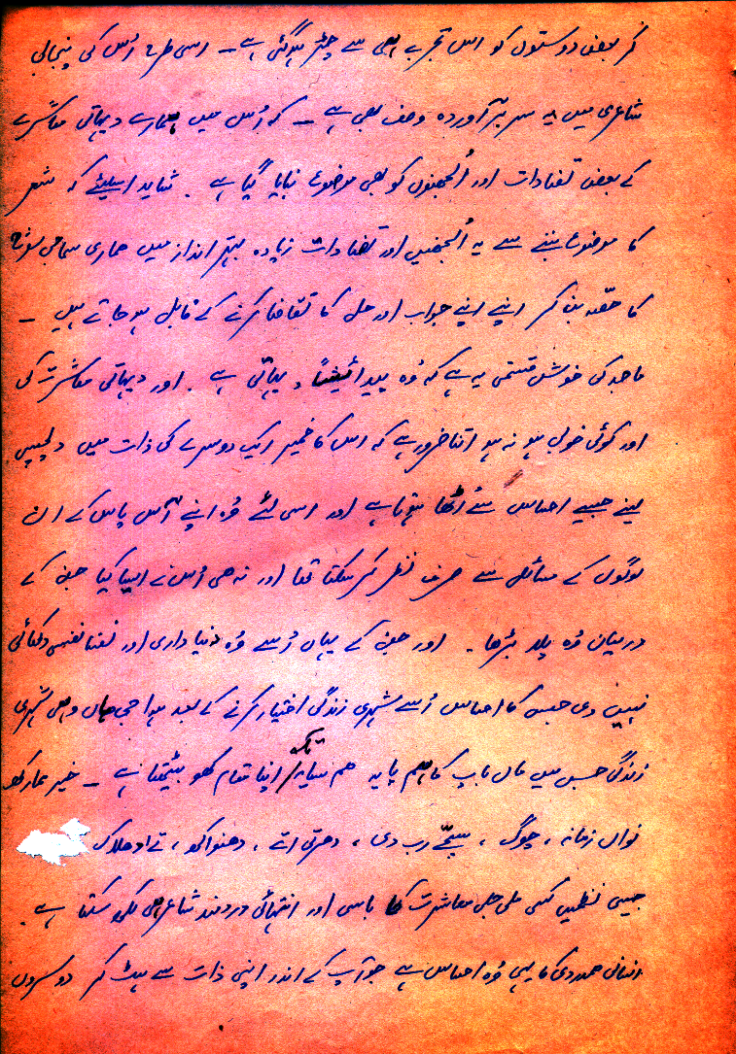 کر بعض دوستوں کو اس تجربے ہی سے چڑ ہو گئی ہے ۔ اسی طرح اُس کی پنجابی
شاعری میں یہ سر بر آوردہ وصف بھی ہے ۔ کہ اُس میں ہمارے دیہاتی معاشرے
کے بعض تضادات اور اُلجھنوں کو بھی موضوع بنایا گیا ہے ۔ شاید اسلیئے کہ شعر
کا موضوع بننے سے یہ اُلجھنیں اور تضادات زیادہ بہتر انداز میں ہماری سماجی سوچ
کا حصّہ بن کر اپنے اپنے جواب اور حل کا تقاضا کرنے کے قابل ہو جاتے ہیں ۔
ماجد کی خوش قسمتی یہ ہے کہ وُہ پیدائیشاً دیہاتی ہے ۔ اور دیہاتی معاشرت کی
اور کوئی خوبی ہو نہ ہو اتنا ضرور ہے کہ اس کا خمیر ایک دوسرے کی ذات میں دلچسپی
لینے جیسے احساس سے اُٹھا ہوتا ہے اور اسی لئے وُہ اپنے آس پاس کے ان
لوگوں کے مسائل سے صرف نظر کر سکتا تھا اور نہ ہی اُس نے ایسا کیا جن کے
درمیان وُہ پلا بڑھا ۔ اور جن کے یہاں اُسے وُہ دنیا داری اور نفسا نفسی دکھائی
نہیں دی جس کا احساس اُسے شہری زندگی اختیار کرنے کے بعد ہوا جی ہاں وہی شہری
زندگی جس میں ماں باپ کا ہم پایہ ہمسایہ تک اپنا مقام کھو بیٹھتا ہے ۔ خیر
نواں زمانہ ، چوگ ، سچّے رب دی ، دھرتی اتے ،
جیسی نظمیں کسی ملی جلی معاشرت کا باسی اور انتہائی دردمند شاعر ہی لکھ سکتا ہے ۔
انسانی ہمدردی کا یہی وُہ احساس ہے جو آپ کے اندر اپنی ذات سے ہٹ کر دوسروں